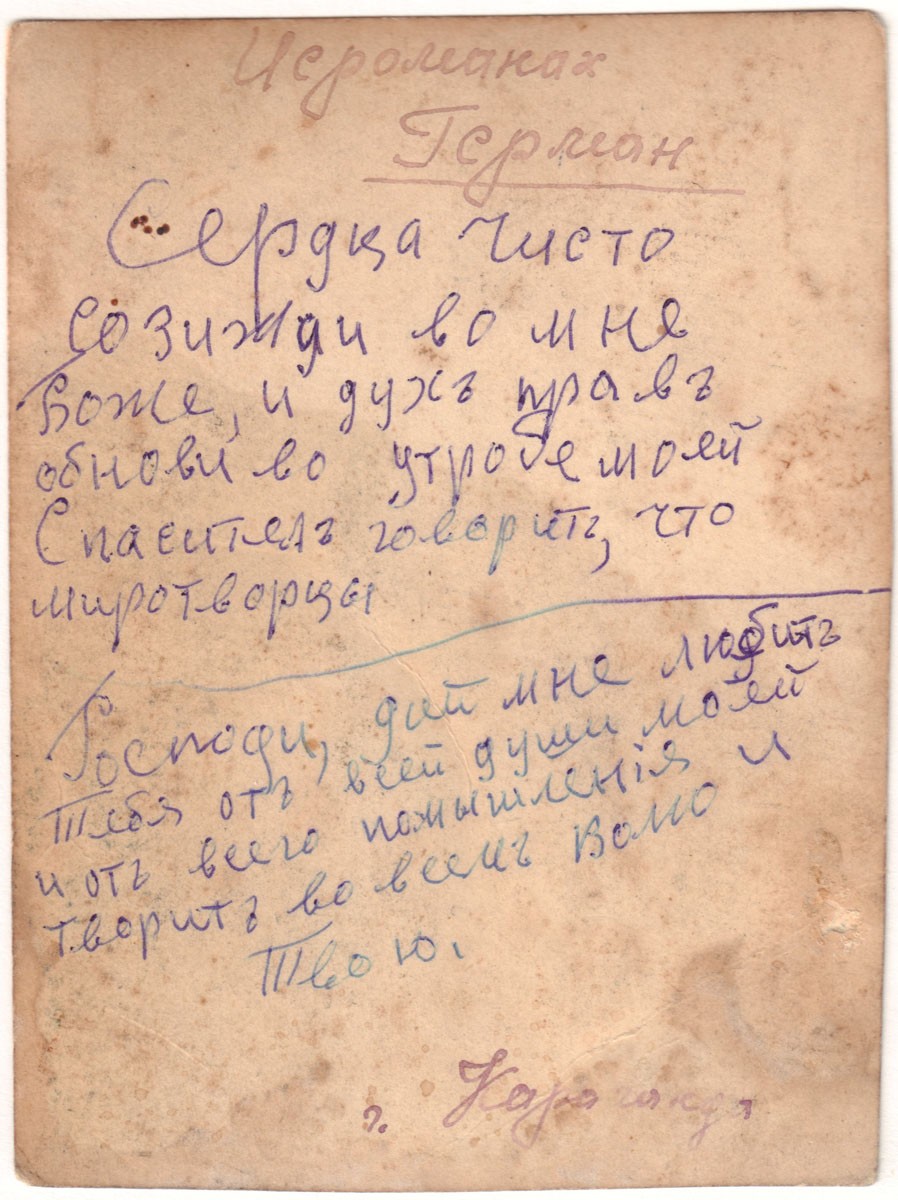 Иеромонах
Герман
Сердца чисто
созижди во мне
Боже, и духъ правъ
обнови во утробе моей
Спаситель говоритъ, что
миротворцы
Господи, дай мне любить
Тебя отъ всей души моей
и отъ всего помышленія и
творить во всемъ волю
Твою.
г. Караганда